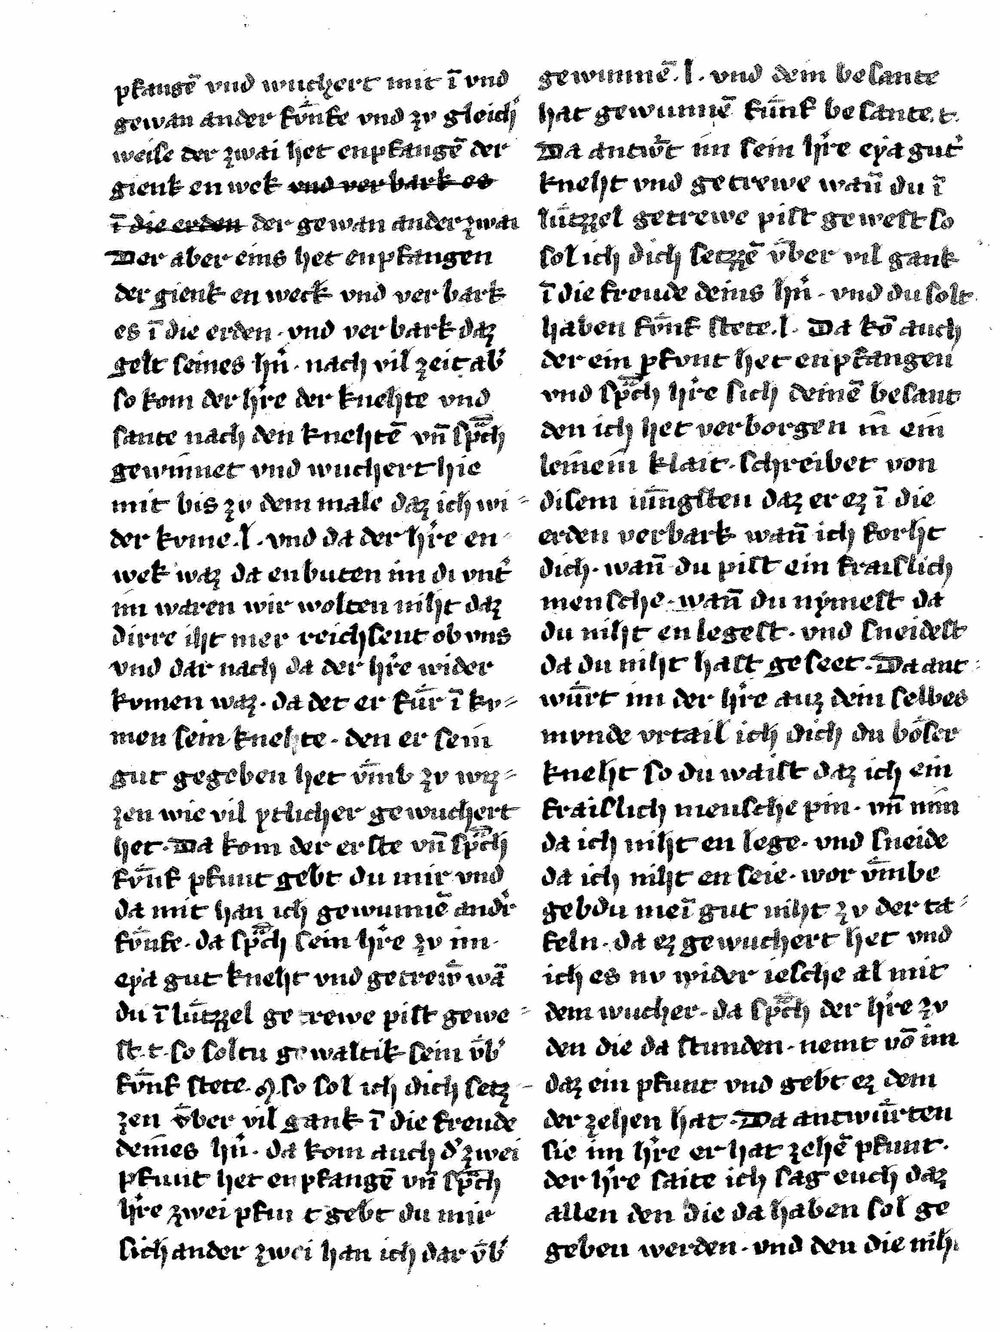 pfangē vnd wuchert mit ī vnd
gewan ander fv́nfe vnd zv gleich'
weise der zwai het enpfangē der
gienk en wek vnd ver bark es
ī die erden der gewan ander zwai
Der aber eins het enpfangen
der gienk en weck vnd ver bark
es ī die erden · vnd ver bark daz
gelt seines hr̄n · nach vil zeit ab'
so kom der h're der knehte vnd
sante nach den knehtē vn̄ sp̄ch
gewinnet vnd wuchert hie
mit bis zv dem male daz ich wi-
der kvme .l. vnd da der h're en-
wek waz da enbuten im di vnt'
im waren wir wolten niht daz
dirre iht mer reichsent ob vns
vnd dar nach da der h're wider
kvmen waz · da det er fu̓r ī kv-
men sein knehte · den er sein
gut gegeben het v̄mb zv wiz-
zen wie vil ytlicher gewuchert
het · Da kom der erste vn̄ sp̄ch
fv́nf pfunt gebt du mir vnd
da mit han ich gewunnē and'r
fv́nfe · da sp̄ch sein h're zv im ·
eya gut kneht vnd getrew̄ wā
du ī lu̓tzzel getrewe pist gewe-
st .t. so soltu gewaltik sein v̓b'
fv́nf stete · so sol ich dich setz-
zen v̓ber vil gank ī die freude
deines hr̄n · da kom auch d' zwei
pfunt het enpfangē vn̄ sp̄ch
h're zwei pfunt gebt du mir
sich ander zwei han ich dar v̓b'
gewunnē .l. vnd dem besante
hat gewunnē fu̓nf besante .t.
Da antw̓t im sein h're eya gut'
kneht vnd getrewe wan̄ du ī
lu̓tzzel getrewe pist gewest so
sol ich dich setzzē v̓ber vil gank
ī die freude deins hr̄n · vnd du solt
haben fv́nf stete .l. Da kō auch
der ein pfvnt het enpfangen
vnd sp̄ch h're sich deinē besant
den ich het verborgen in ein
leinein klait · schreibet von
disem iu̓ngsten daz er ez ī die
erden verbark wan̄ ich forht
dich · wan̄ du pist ein fraislich
mensche · wan̄ du nymest da
du niht en legest · vnd sneidest
da du niht hast geseet · Da ant-
wu̓rt im der h're auz dein selbes
mvnde vrtail ich dich du böser
kneht so du waist daz ich ein
fraislich mensche pin · vn̄ nim
da ich niht en lege · vnd sneide
da ich niht en seie · wor v̄mbe
gebdu meī gut niht zv der ta-
feln · da ez gewuchert het vnd
ich es nv wider iesche al mit
dem wucher · da sp̄ch der h're zv
den die da stunden · nemt vō im
daz ein pfunt vnd gebt ez dem
der zehen hat · Da antwu̓rten
sie im h're er hat zehē pfunt ·
der h're saite ich sag euch daz
allen den die da haben sol ge
geben werden · vnd den die niht